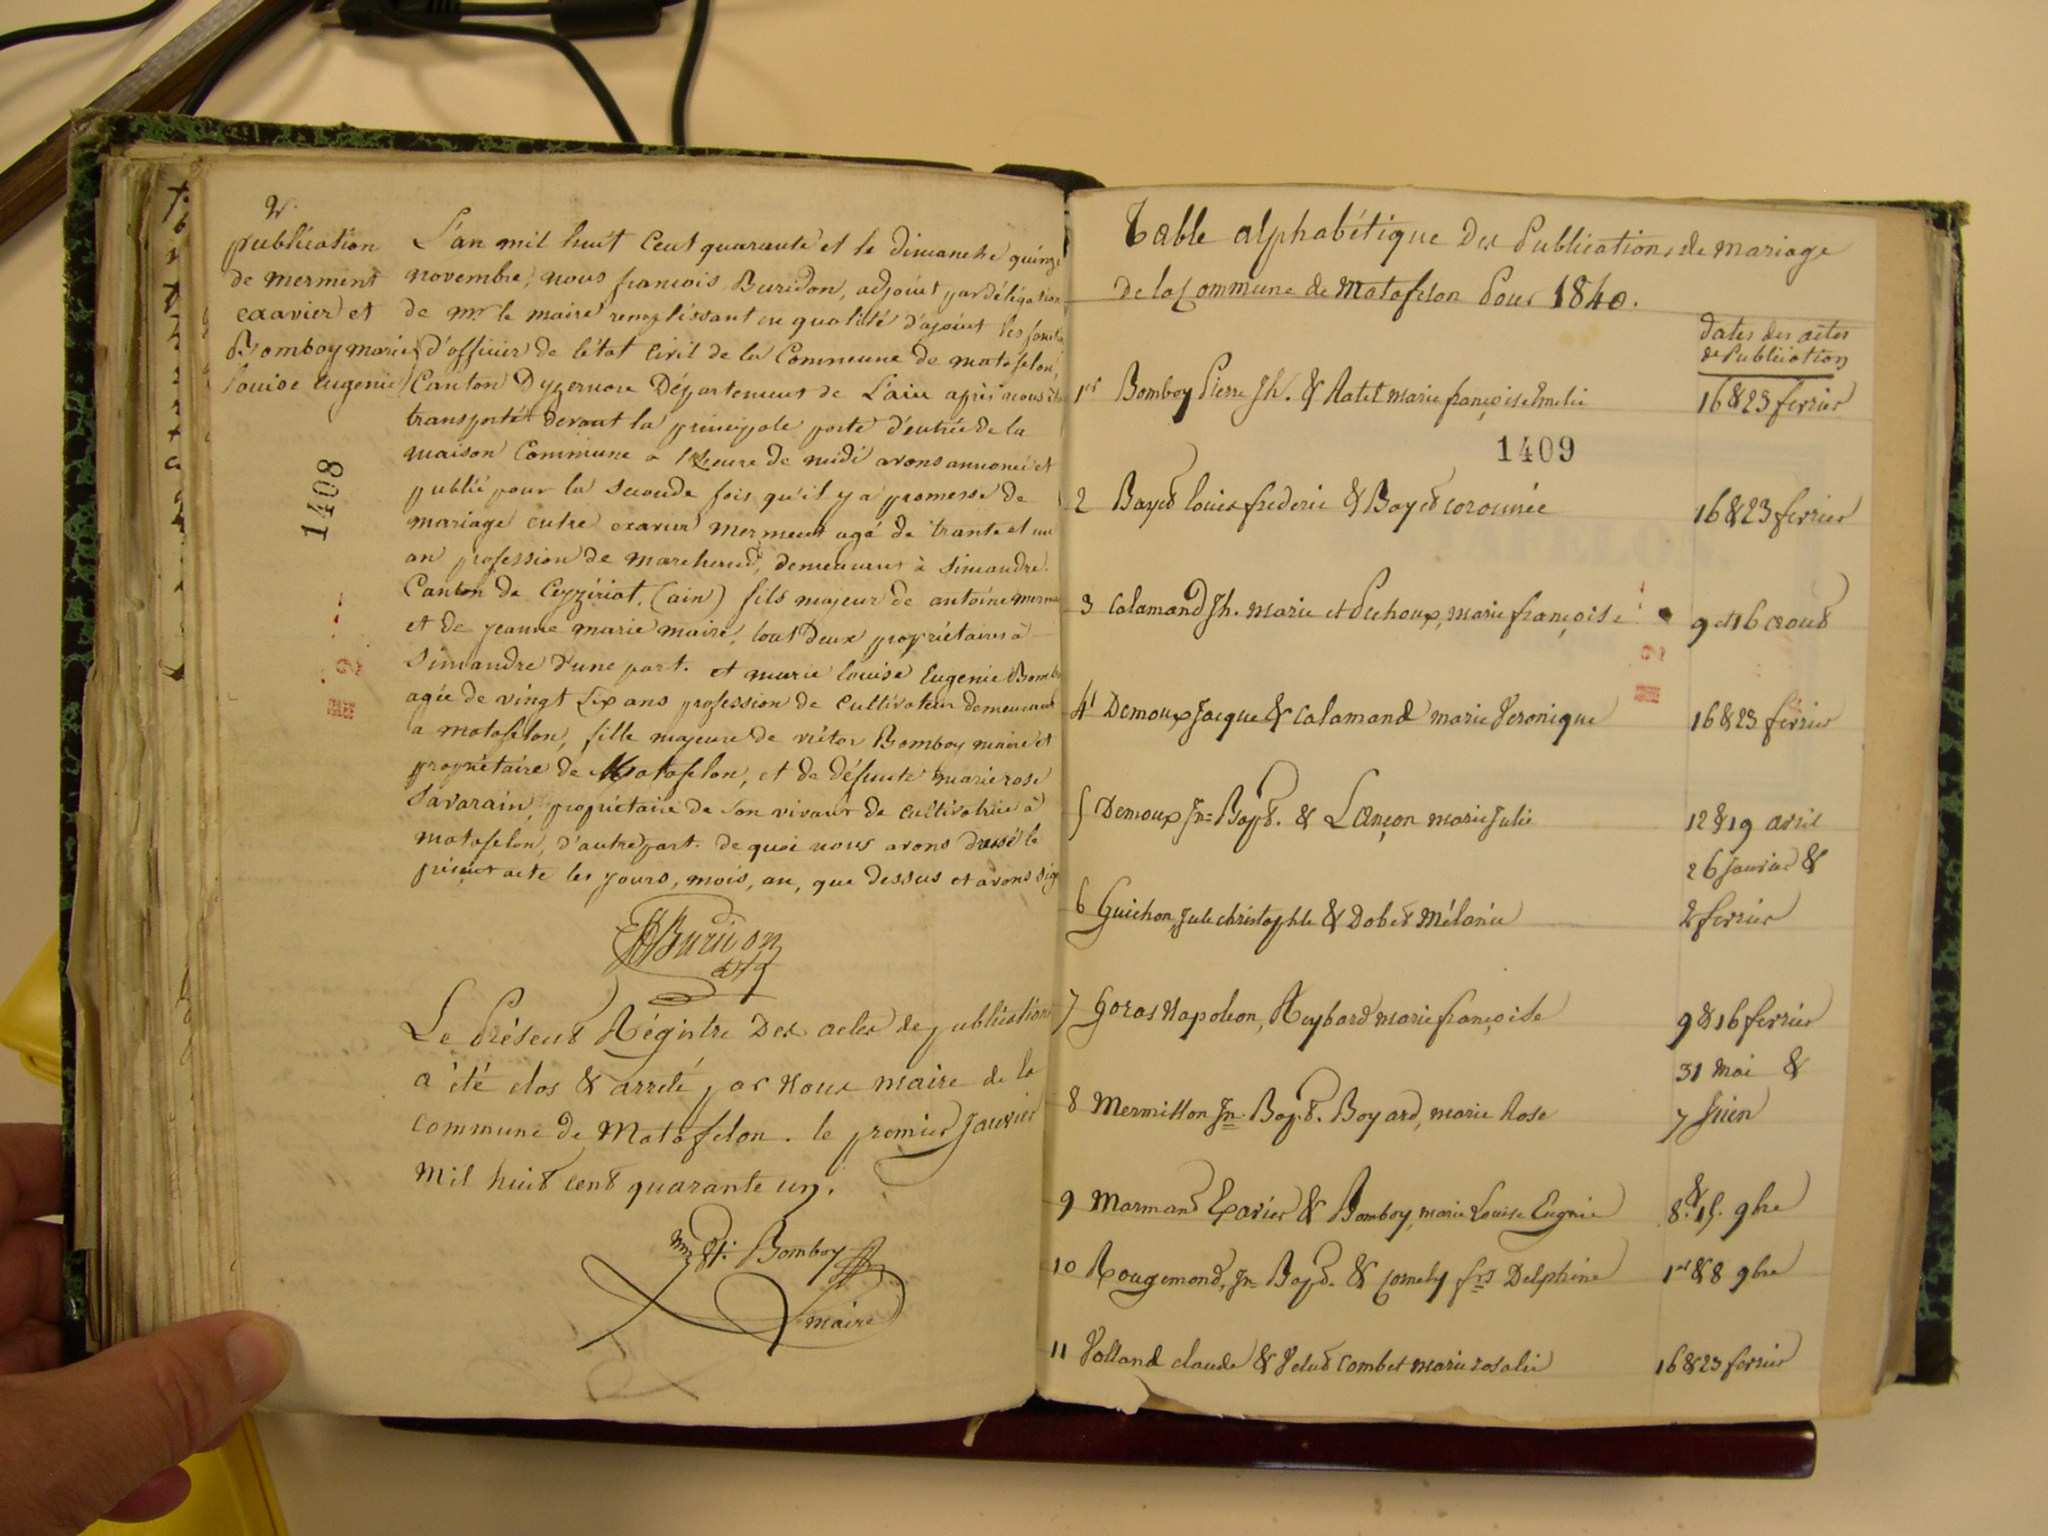 publication
de merment
exavier et
Bomboy marie
louise eugenie
1408
L'an mil huit Cent quarante et le dimanche quinze
novembre, nous francois Buridon, adjoint par délégation
de mr le maire remplissant en qualité d'ajoint les fonct
d'officier de l'état Civil de la Commune de matafelon,
Canton Dyzernore Département de L'ain après nous être
transporté devant la principale porte d'entrée de la
maison Commune a l'heure de midi avons annoncé et
publié pour la seconde fois qu'il y a promesse de
mariage entre exavier merment agé de trante et un
an profession de marchand, demeurant à Simandre
Canton de Ceyzériat, (ain) fils majeur de antoine merme
et de jeanne marie maire, tout deux propriétaires à
Simandre d'une part. et marie louise Eugenie Bombo
agée de vingt six ans profession de Cultivateur demeurant
a matafelon, fille majeure de victor Bomboy maire et
propriétaire de Matafelon, et de défunte marie rose
Savarain, propriétaire de son vivant de cultivatrice à
matafelon, d'autre part. de quoi nous avons dressé le
présent acte les jours, mois, an, que dessus et avons sign
Buridon
adj
Le Présent Régistre Des actes de publications
a été clos & arrêté par nous maire de la
commune de Matafelon. le premier Janvier
mil huit cent quarante un.
Bomboy
maire
Table alphabétique Des Publications de mariage
De la Commune de Matafelon Pour 1840.
Dates des actes
de Publication
1er Bomboy Pierre Jh. & Ratet marie françoise Emelie 16 & 23 fevrier
1409
2 Bayet louis frederic & Boyet coronnée 16 & 23 fevrier
3 Calamand Jh. marie et Puthoux, marie françoise 9 et 16 aout
4 Demoux Jacque & Calamand marie Veronique 16 & 23 fevrier
5 Demoux Jn= Bapt. & Lançon marie Julie 12 & 19 avril
26 Janvier &
6 Guichon, Jule christophle & Dobet Mélanie 2 fevrier
7 Goras Napoleon, Reybard marie françoise 9 & 16 fevrier
31 Mai &
8 Mermillon Jn Bapt. Boyard, marie Rose 7 Juin
9 Marmand Exavier & Bomboy, marie Louise Eugenie 8 & 15. 9bre
10 Rougemond, Jn Bapt. & Comely frs Delphine 1er & 8 9bre
11 Volland claude & Velut combet marie rosalie 16 & 23 fevrier